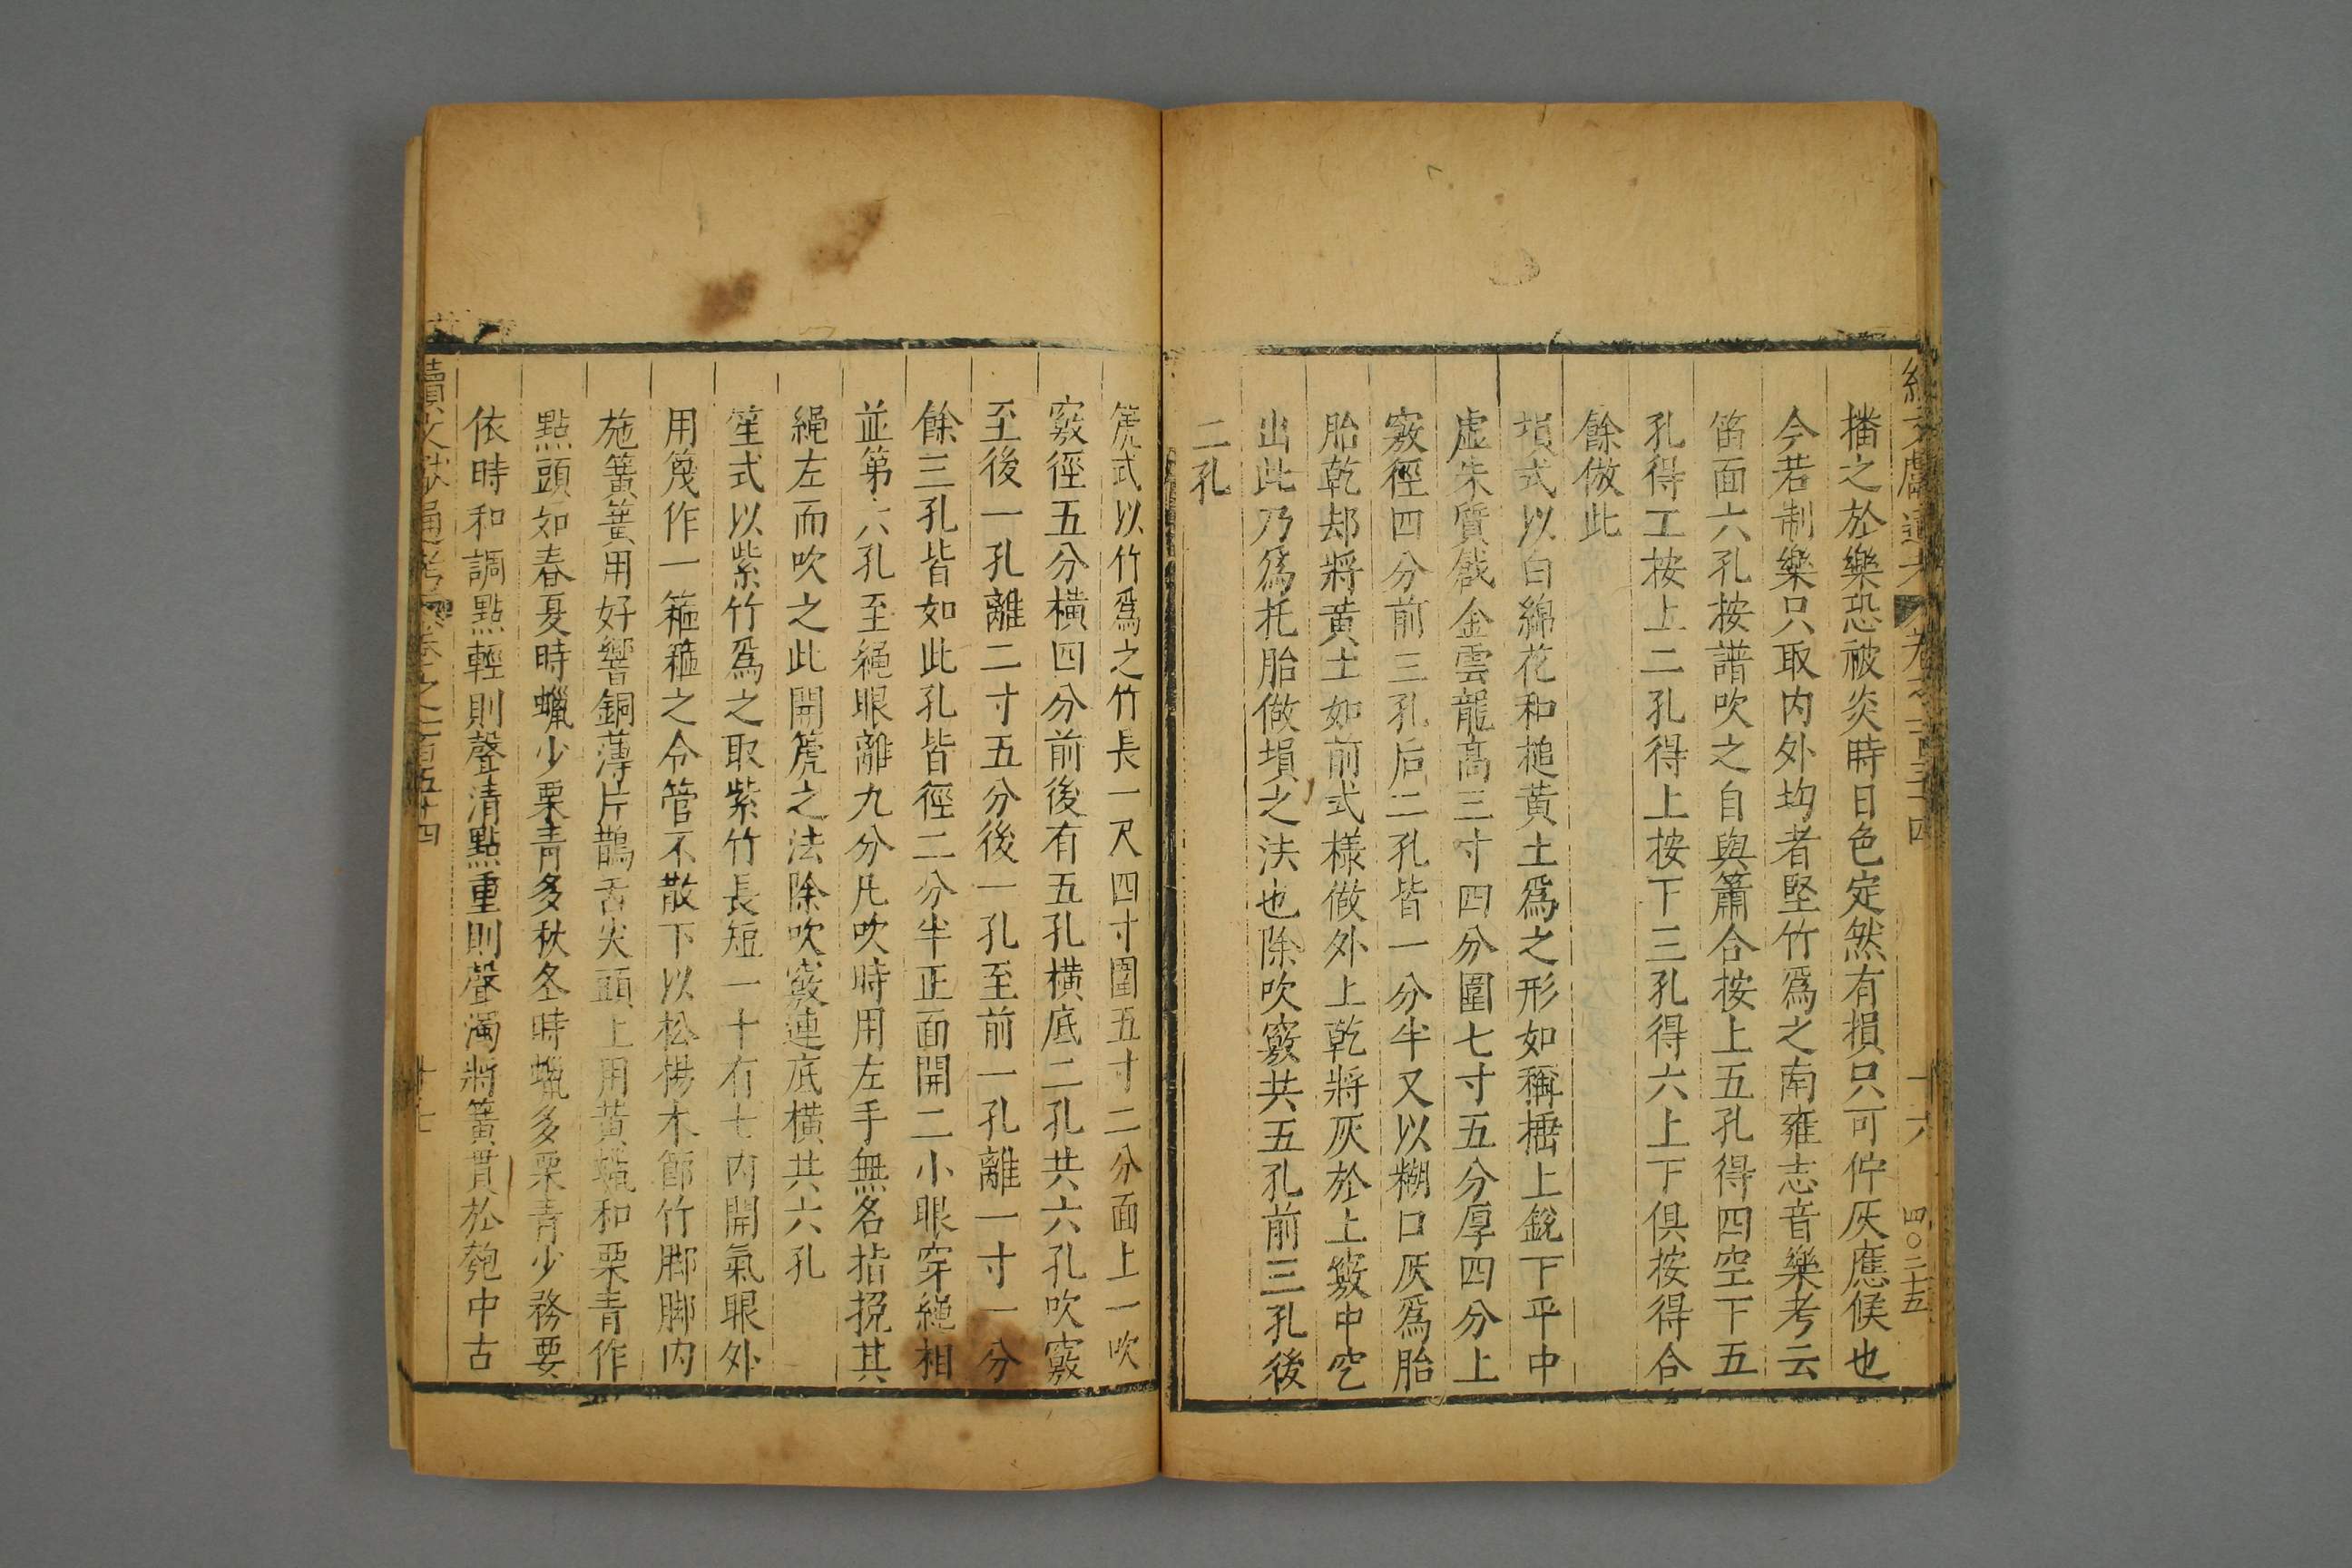 播之於樂恐被炎時日色定然有損只可佇灰應候也
今若制樂只取内外均者堅竹爲之南雍志音樂考云
笛面六孔按譜吹之自與簫合按上五孔得四空下五
孔得工按上二孔得上按下三孔得六上下俱按得合
餘倣此
塤式以白綿花和搥黃土爲之形如稱棰上銳下平中
虛朱質戧金雲龍高三寸四分圍七寸五分厚四分上
竅徑四分前三孔后二孔皆一分半又以糊口灰爲胎
胎乾却將黃土如前式樣做外上乾將灰於上竅中空
出此乃爲托胎做塤之法也除吹竅共五孔前三孔後
二孔
篪式以竹爲之竹長一尺四寸圍五寸二分面上一吹
竅徑五分橫四分前後有五孔橫底二孔共六孔吹竅
至後一孔離二寸五分後一孔至前一孔離一寸一分
餘三孔皆如此孔皆徑二分半正面開二小眼穿繩相
並第六孔至繩眼離九分凡吹時用左手無名指挽其
繩左而吹之此開篪之法除吹竅連底橫共六孔
笙式以紫竹爲之取紫竹長短一十有七内開氣眼外
用篾作一箍箍之令管不散下以松梯木節竹脚脚内
施簧簧用好響銅薄片鵲舌尖頭上用黃蠟和栗青作
點頭如春夏時蠟少栗青多秋冬時蠟多栗青少務要
依時和調點輕則聲清點重則聲濁將簧貫於匏中古
續文獻通考 卷之一百五十四 十七